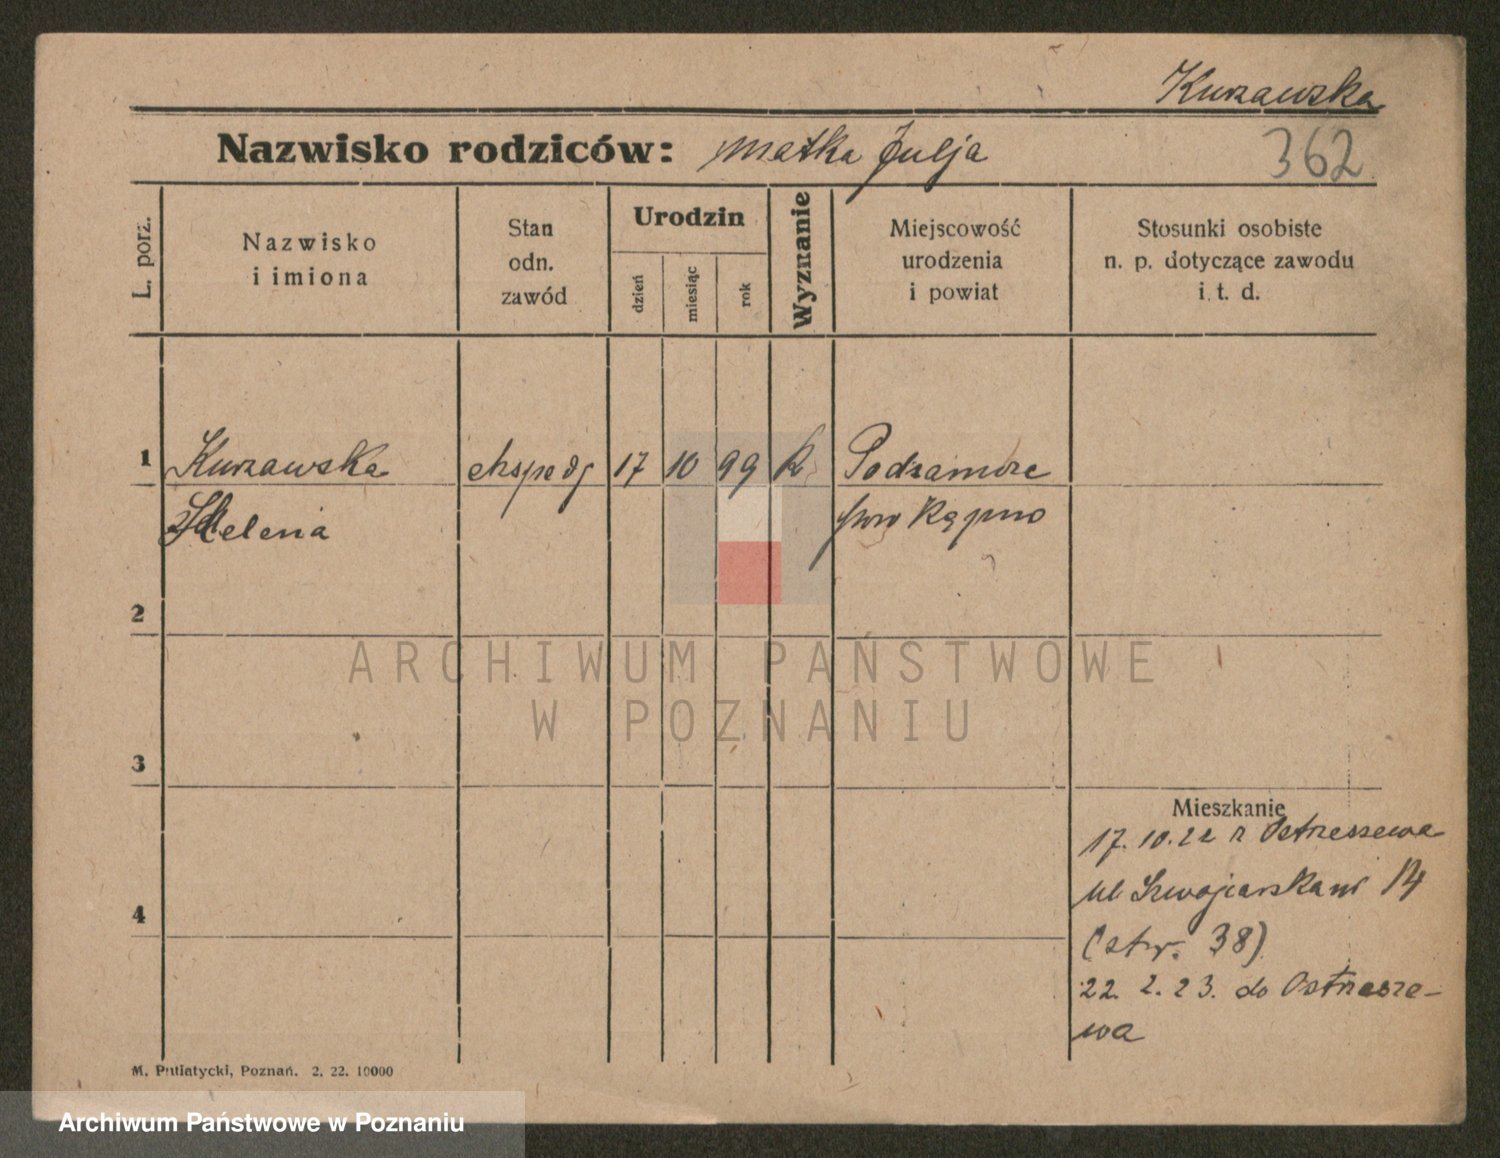 Kurzawska
Nazwisko rodziców: matka Julja
362
L. porz.
Nazwisko
i imiona
Stan
odn.
zawód
Urodzin
dzień
miesiąc
rok
Wyznanie
Miejscowość
urodzenia
i powiat
Stosunki osobiste
n. p. dotyczące zawodu
i. t. d.
1 Kurzawska ekspedj 17 10 99 k Podzamcze
Helena pow Kępno
2
3
4
ARCHIWUM PAŃSTWOWE
W POZNANIU
Mieszkanie
17.10.22 z Ostrzeszewa
ul 14
(str. 38)
22. 2. 23. do Ostrzesze-
wa
M. Putiatycki, Poznań. 2. 22. 10000
Archiwum Państwowe w Poznaniu